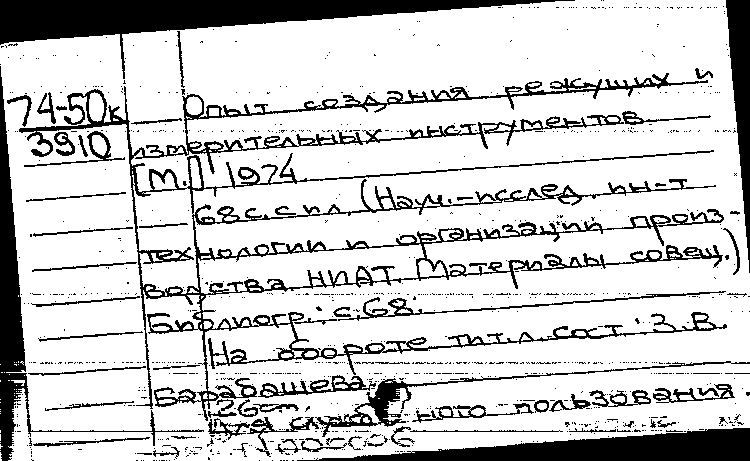 74-50к
3910
Опыт создания режущих и
измерительных инструментов.
[М.], 1974.
68 с. с ил. (Науч.-исслед. ин-т
технологии и организации произ-
водства НИАТ. Материалы совещ.)
Библиогр.: с. 68.
На обороте тит. л. сост.: З. В.
Барабашева.
26 см.
Для служебного пользования.